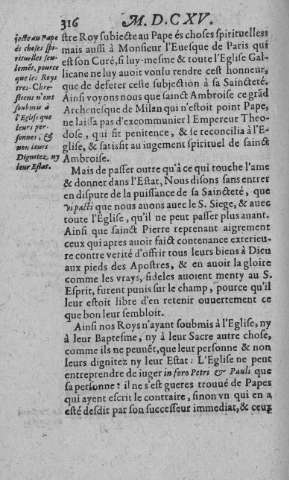 316 M. D. C XV.
iecte au Pape
és choses spi-
rituelles seu-
lemẽt, pource
que les Roys
tres-Chre-
stiens n'ont
soubmis à
l'Eglise que
leurs per-
sonnes, &
non leurs
Dignitez, ny
leur Estat.
stre Roy subiecte au Pape és choses spirituelles
mais aussi à Monsieur l'Euesque de Paris qui
est son Curé, si luy-mesme & toute l'Eglise Gal-
licane ne luy auoit voulu rendre cest honneur,
que de deferer ceste subjection à sa Saincteté.
Ainsi voyons nous que sainct Ambroise ce grãd
Archeuesque de Milan qui n'estoit point Pape,
ne laissa pas d'excommunier l Empereur Theo-
dose, qui fit penitence, & se reconcilia à l'E-
glise, & satisfit au iugement spirituel de sainct
Ambroise.
Mais de passer outre qu'à ce qui touche l'ame
& donner dans l'Estat, Nous disons sans entrer
en dispute de la puissance de sa Saincteté, que
vi pacti que nous auons auec le S. Siege, & auec
toute l'Eglise, qu'il ne peut passer plus auant.
Ainsi que sainct Pierre reprenant aigrement
ceux qui apres auoir faict contenance exterieu-
re contre verité d'offrir tous leurs biens à Dieu
aux pieds des Apostres, & en auoir la gloire
comme les vrays, fideles auoient menty au S.
Esprit, furent punis sur le champ, pource qu'il
leur estoit libre d'en retenir ouuertement ce
que bon leur sembloit.
Ainsi nos Roys n'ayant soubmis à l'Eglise, ny
à leur Baptesme, ny à leur Sacre autre chose,
comme ils ne peuuẽt, que leur personne & non
leurs dignitez ny leur Estat: L'Eglise ne peut
entreprendre de iuger in foro Petri & Pauli que
sa personne: il ne s'est gueres trouué de Papes
qui ayent escrit le contraire, sinon vn qui en a
esté desdit par son successeur immediat, & ceux